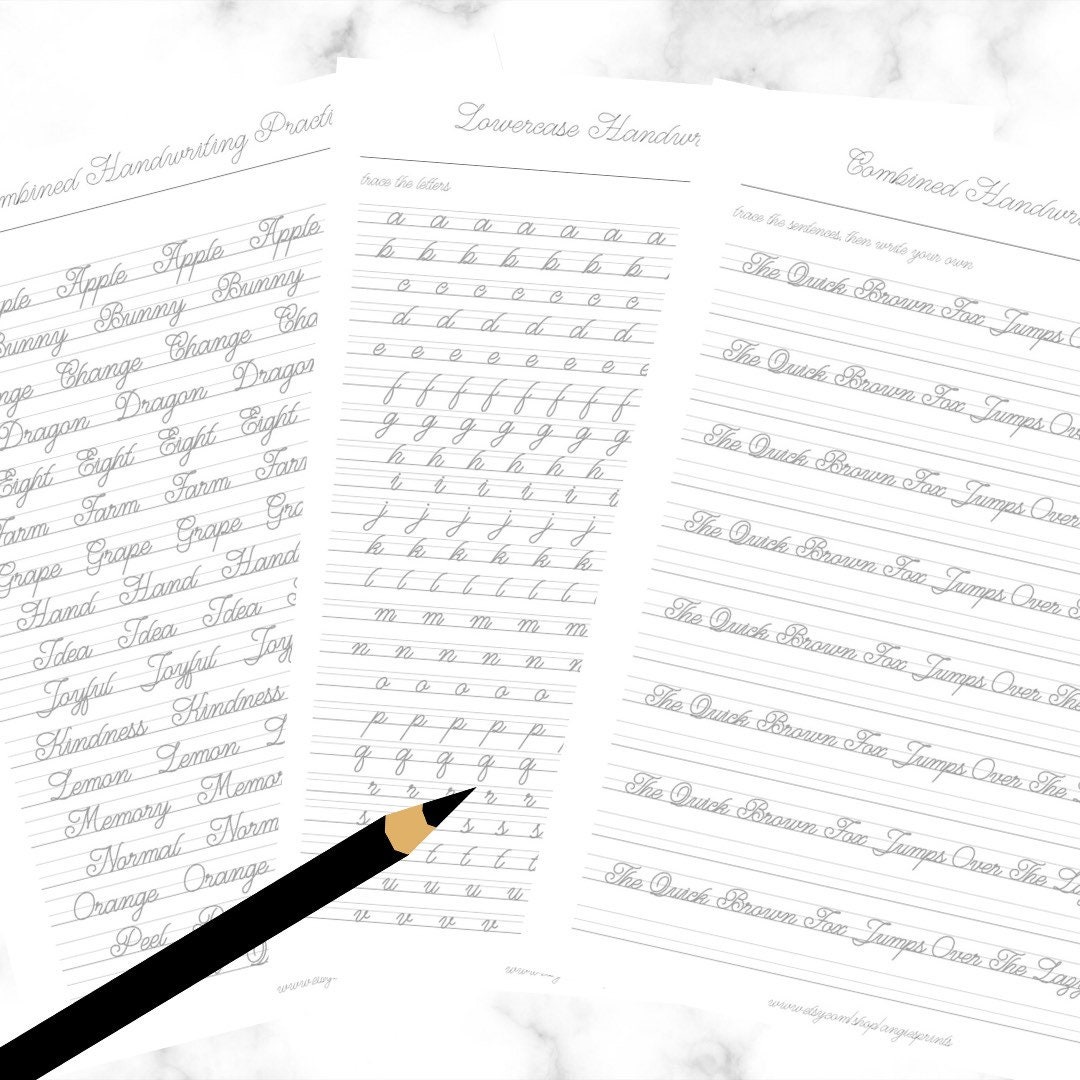 Combined Handwriting Practi
Apple Apple Apple
Bunny Bunny Bunny
Change Change Cha
Dragon Dragon Dragon
Eight Eight Eight Eight
Farm Farm Farm Farm
Grape Grape Grape Gra
Hand Hand Hand
Idea Idea Idea
Joyful Joyful Joy
Kindness Kindness
Lemon Lemon L
Memory Memor
Normal Norm
Orange Orange
Peel
www.etsy
Lowercase Handwr
trace the letters
a a a a a a a
b b b b b b b
c c c c c c c
d d d d d d
e e e e e e e e
f f f f f f f f
g g g g g g g
h h h h h h
i i i i i i
j j j j j j
k k k k k k
l l l l l l l
m m m m m
n n n n n n
o o o o o
p p p p p
q q q q q
r r r r
s s s s
t t t t
u u u u
v v v v
Combined Handwri
trace the sentences, then write your own
The Quick Brown Fox Jumps O
The Quick Brown Fox Jumps Ove
The Quick Brown Fox Jumps Over
The Quick Brown Fox Jumps Over
The Quick Brown Fox Jumps Over The
The Quick Brown Fox Jumps Over The L
The Quick Brown Fox Jumps Over The La
The Quick Brown Fox Jumps Over The Lazy
www.etsy.com/shop/angiesprints